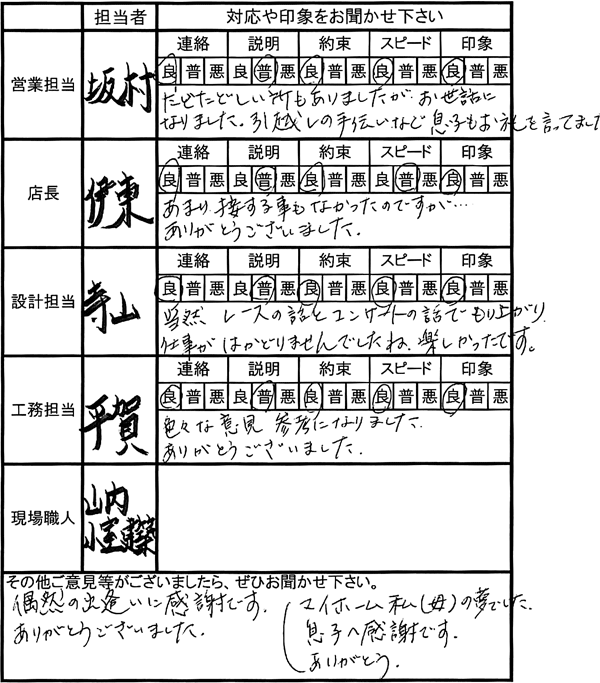 担当者 対応や印象をお聞かせ下さい
営業担当 坂村
連絡 説明 約束 スピード 印象
良 普 悪 良 普 悪 良 普 悪 良 普 悪 良 普 悪
たどたどしい所もありましたが、お世話に
なりました。引越しの手伝いなど息子もお礼を言ってました
店長 伊東
連絡 説明 約束 スピード 印象
良 普 悪 良 普 悪 良 普 悪 良 普 悪 良 普 悪
あまり接する事もなかったのですが…
ありがとうございました.
設計担当 寺山
連絡 説明 約束 スピード 印象
良 普 悪 良 普 悪 良 普 悪 良 普 悪 良 普 悪
当然 レースの話とコンサートの話でもり上がり
仕事がはかどりませんでしたね、楽しかったです。
工務担当 平賀
連絡 説明 約束 スピード 印象
良 普 悪 良 普 悪 良 普 悪 良 普 悪 良 普 悪
色々な意見 参考になりました.
ありがとうございました.
現場職人 山内
小室
その他ご意見等がございましたら、ぜひお聞かせ下さい。
偶然の出逢いに感謝です.
ありがとうございました.
マイホーム 私(母)の夢でした.
息子へ感謝です.
ありがとう.